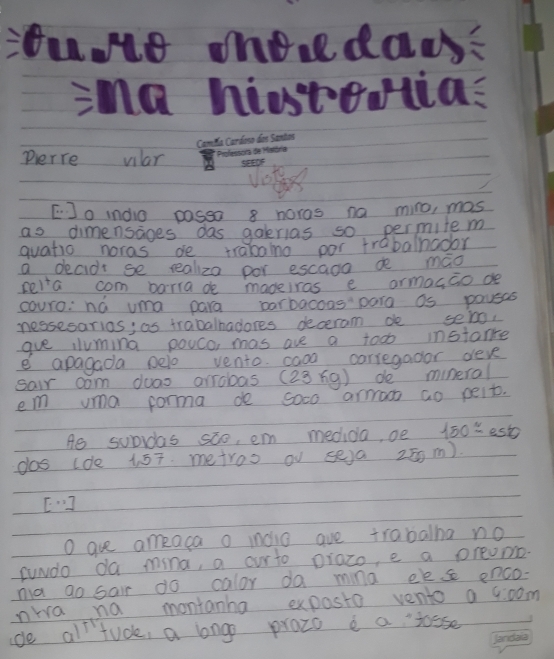 ouro moedas
na historia
Pierre vilar
Camilla Cardoso dos Santos
Professora de História
SEEDF
[...] o indio passa 8 horas na mina, mas
as dimensões das galerias so permitem
quatro horas de trabalho por trabalhador
a decida se realiza por escada de mão
feita com barra de madeiras e armação de
couro: há uma para barbacoas" para os pausas
nessesarias; os trabalhadores deceram de sebo,
que ilumina pouco, mas que a todo instante
é apagada pelo vento. cada carregador deve
sair com duas arrobas (23 kg) de mineral
em uma forma de saco armado ao peito.
As subidas são, em medida, de 150 esta
dos (de 1,57 metros ou seja 250 m).
[...]
O que ameaça o indio que trabalha no
fundo da mina, a curto prazo, e a pneumo-
nia ao sair do calor da mina ele se enco-
ntra na montanha exposto vento a 4:00m
de altitude, a longo prazo é a "tosse
jandaia